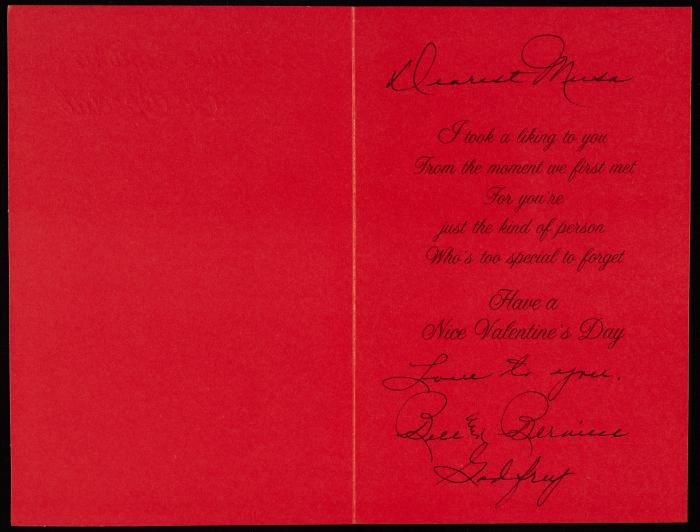 Dearest Musa
I took a liking to you
From the moment we first met
For you're
just the kind of person
Who's too special to forget
Have a
Nice Valentine's Day
Love to you.
Bill and Berniece
Godfrey